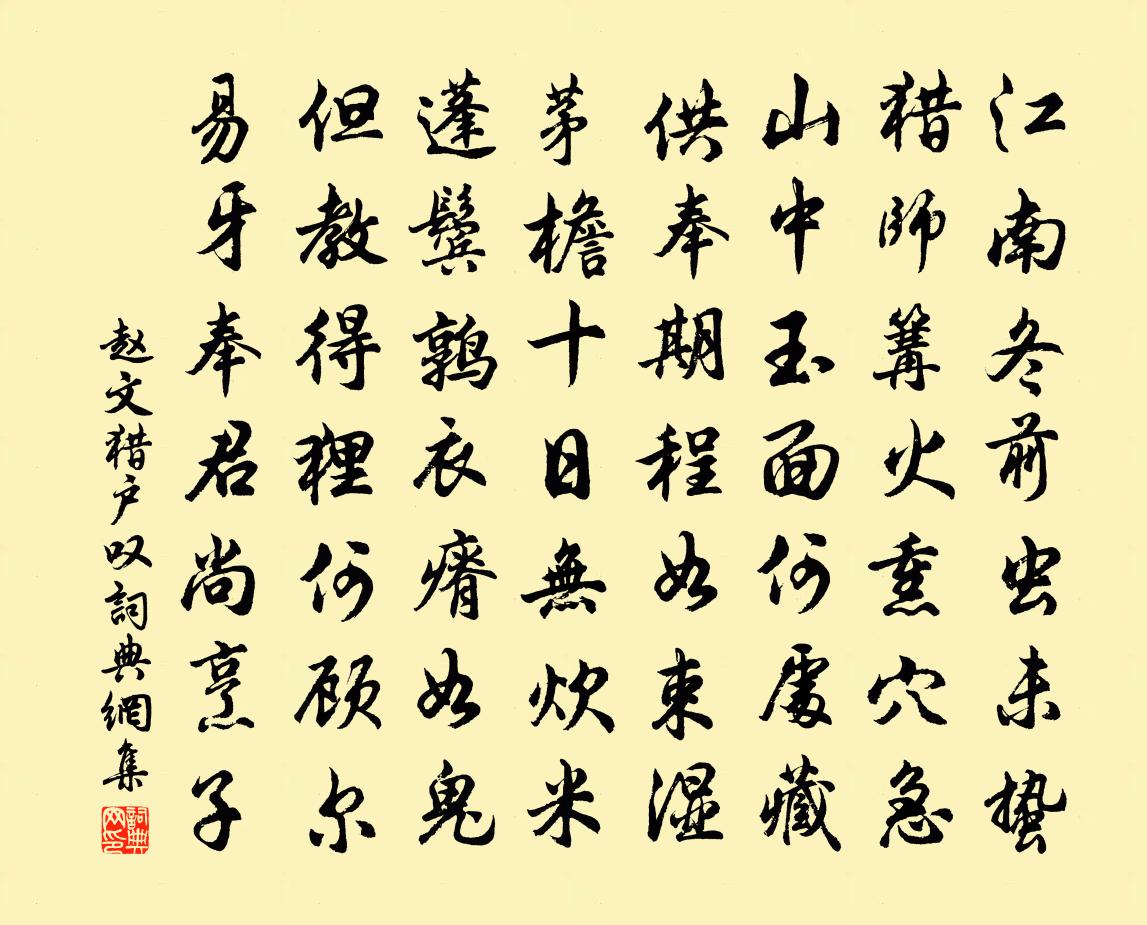 江南冬前虫未蛰
猎师篝火熏穴急
山中玉面何處藏
供奉期程如束湿
茅檐十日無炊米
蓬鬓鹑衣瘠如鬼
但教得狸何顾尔
易牙奉君尚烹子
赵文猎户叹詞典網集
詞典網印